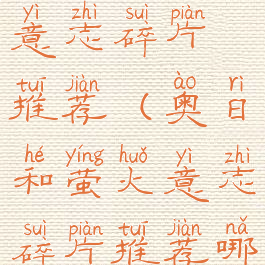 yì zhì suì piàn
意志碎片
tuī jiàn ào rì
推荐(奥日
hé yíng huǒ yì zhì
和萤火意志
suì piàn tuī jiàn nǎ
碎片推荐哪